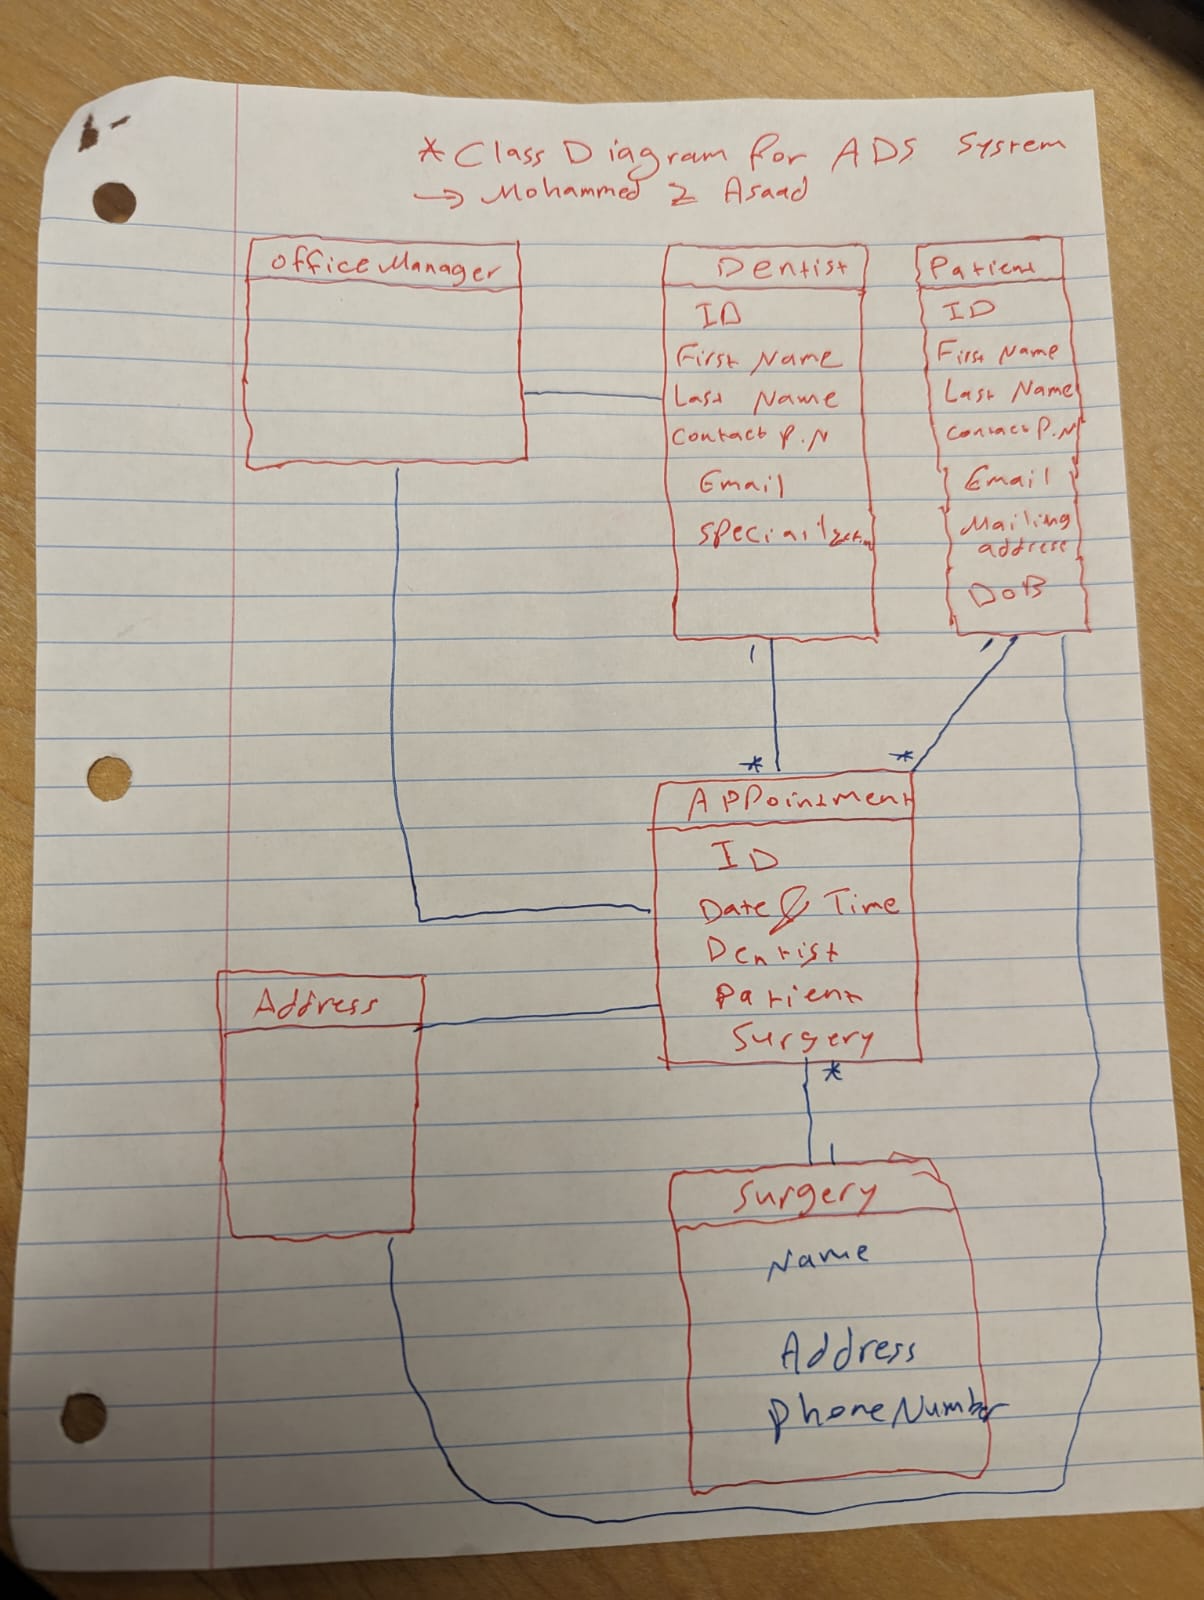 * Class Diagram for ADS System
→ Mohammed Z Asaad
OfficeManager
Dentist
ID
First Name
Last Name
Contact P.N
Email
Patient
ID
First Name
Last Name
Contact P.N
Email
Mailing
address
DoB
1
*
1
*
Appointment
ID
Date & Time
Dentist
Patient
Surgery
*
1
Address
Surgery
Name
Address
PhoneNumber